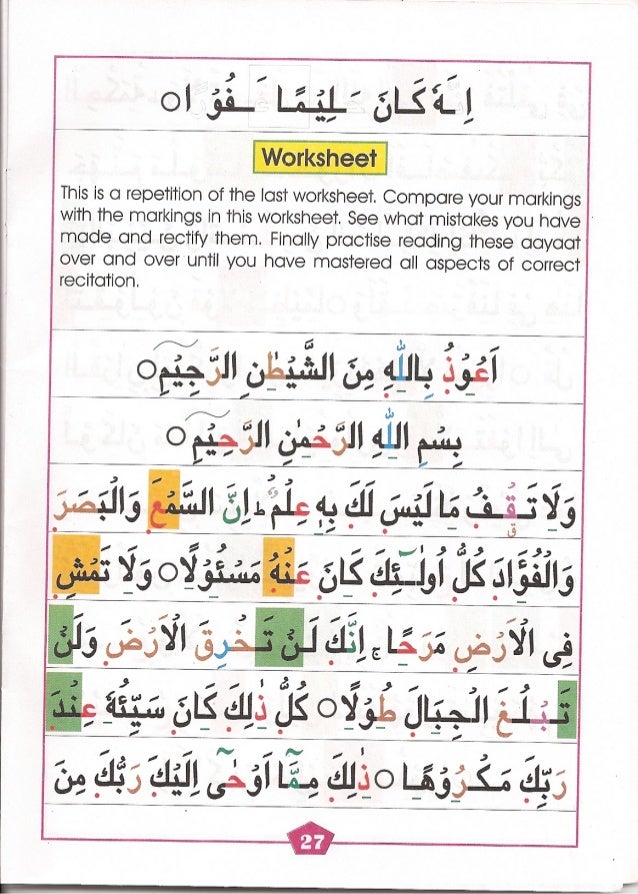 اِنَّهٗ كَانَ َـلِيْمًا َـفُوْ ًا ○
Worksheet
This is a repetition of the last worksheet. Compare your markings
with the markings in this worksheet. See what mistakes you have
made and rectify them. Finally practise reading these aayaat
over and over until you have mastered all aspects of correct
recitation.
اَعُوْذُ بِاللّٰهِ مِنَ الشَّيْطٰنِ الرَّجِيْمِ ○
بِسْمِ اللّٰهِ الرَّحْمٰنِ الرَّحِيْمِ ○
وَلَا تَقْفُ مَا لَيْسَ لَكَ بِهٖ عِلْمٌ ؕ اِنَّ السَّمْعَ وَالْبَصَرَ
وَالْفُؤَادَ كُلُّ اُولٰٓئِكَ كَانَ عَنْهُ مَسْئُوْلًا ○ وَلَا تَمْشِ
فِى الْاَرْضِ مَرَحًا ۚ اِنَّكَ لَنْ تَخْرِقَ الْاَرْضَ وَلَنْ
تَبْلُغَ الْجِبَالَ طُوْلًا ○ كُلُّ ذٰلِكَ كَانَ سَيِّئُهٗ عِنْدَ
رَبِّكَ مَكْرُوْهًا ○ ذٰلِكَ مِمَّآ اَوْحٰٓى اِلَيْكَ رَبُّكَ مِنَ
27